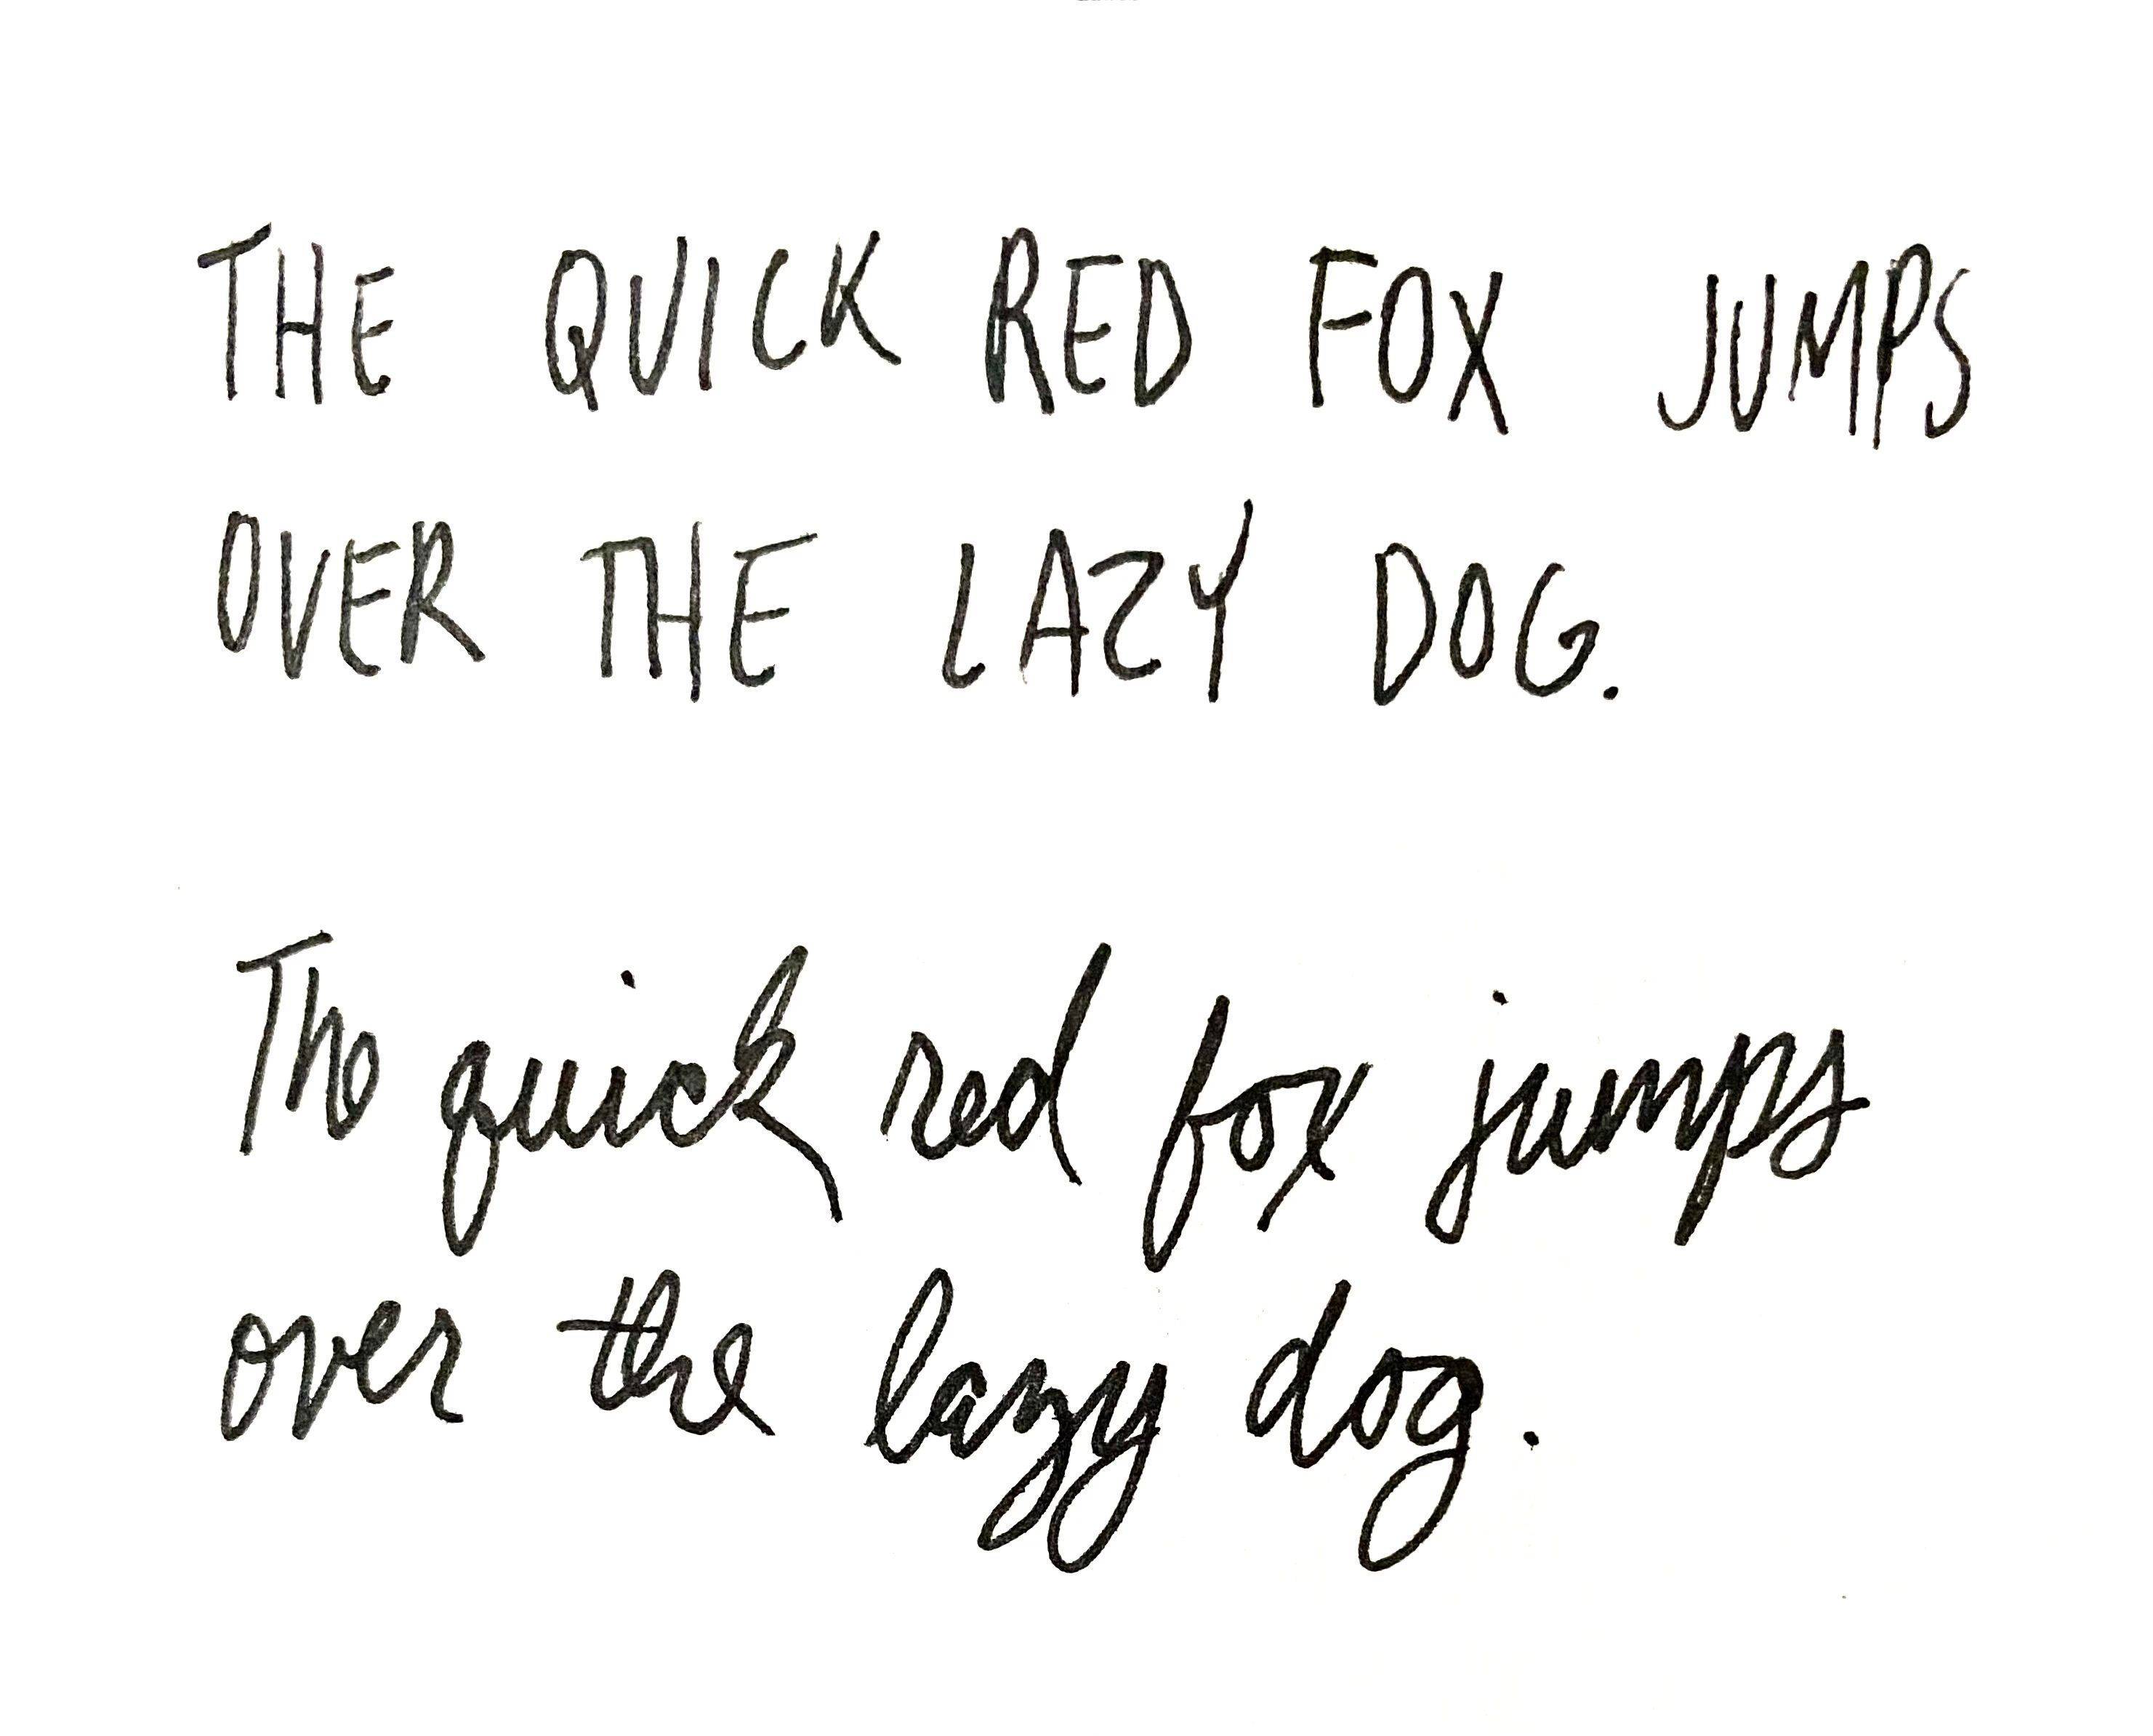 THE QUICK RED FOX JUMPS
OVER THE LAZY DOG.
The quick red fox jumps
over the lazy dog.